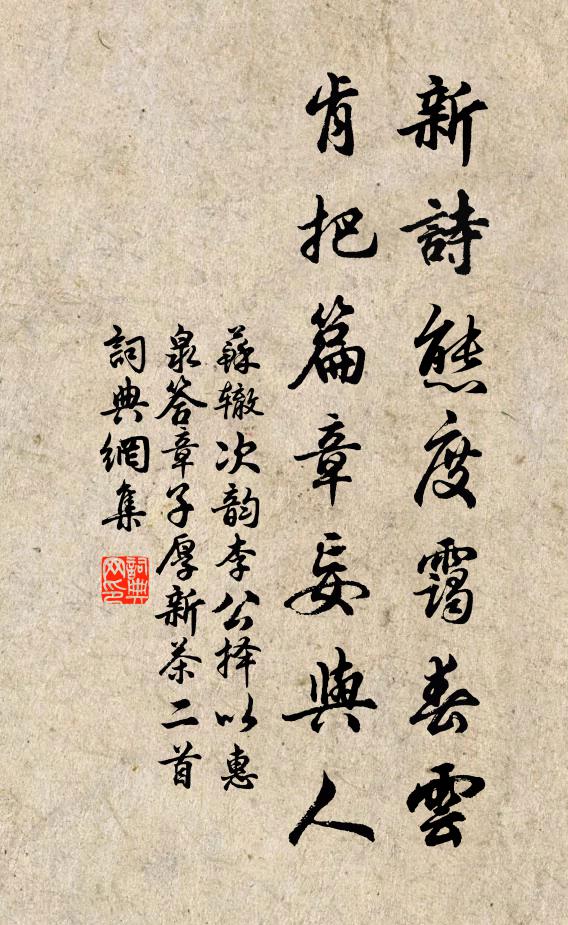 新詩態度靄春雲
肯把篇章妄與人
蘇辙次韵李公择以惠
泉答章子厚新茶二首
詞典網集
詞典网印